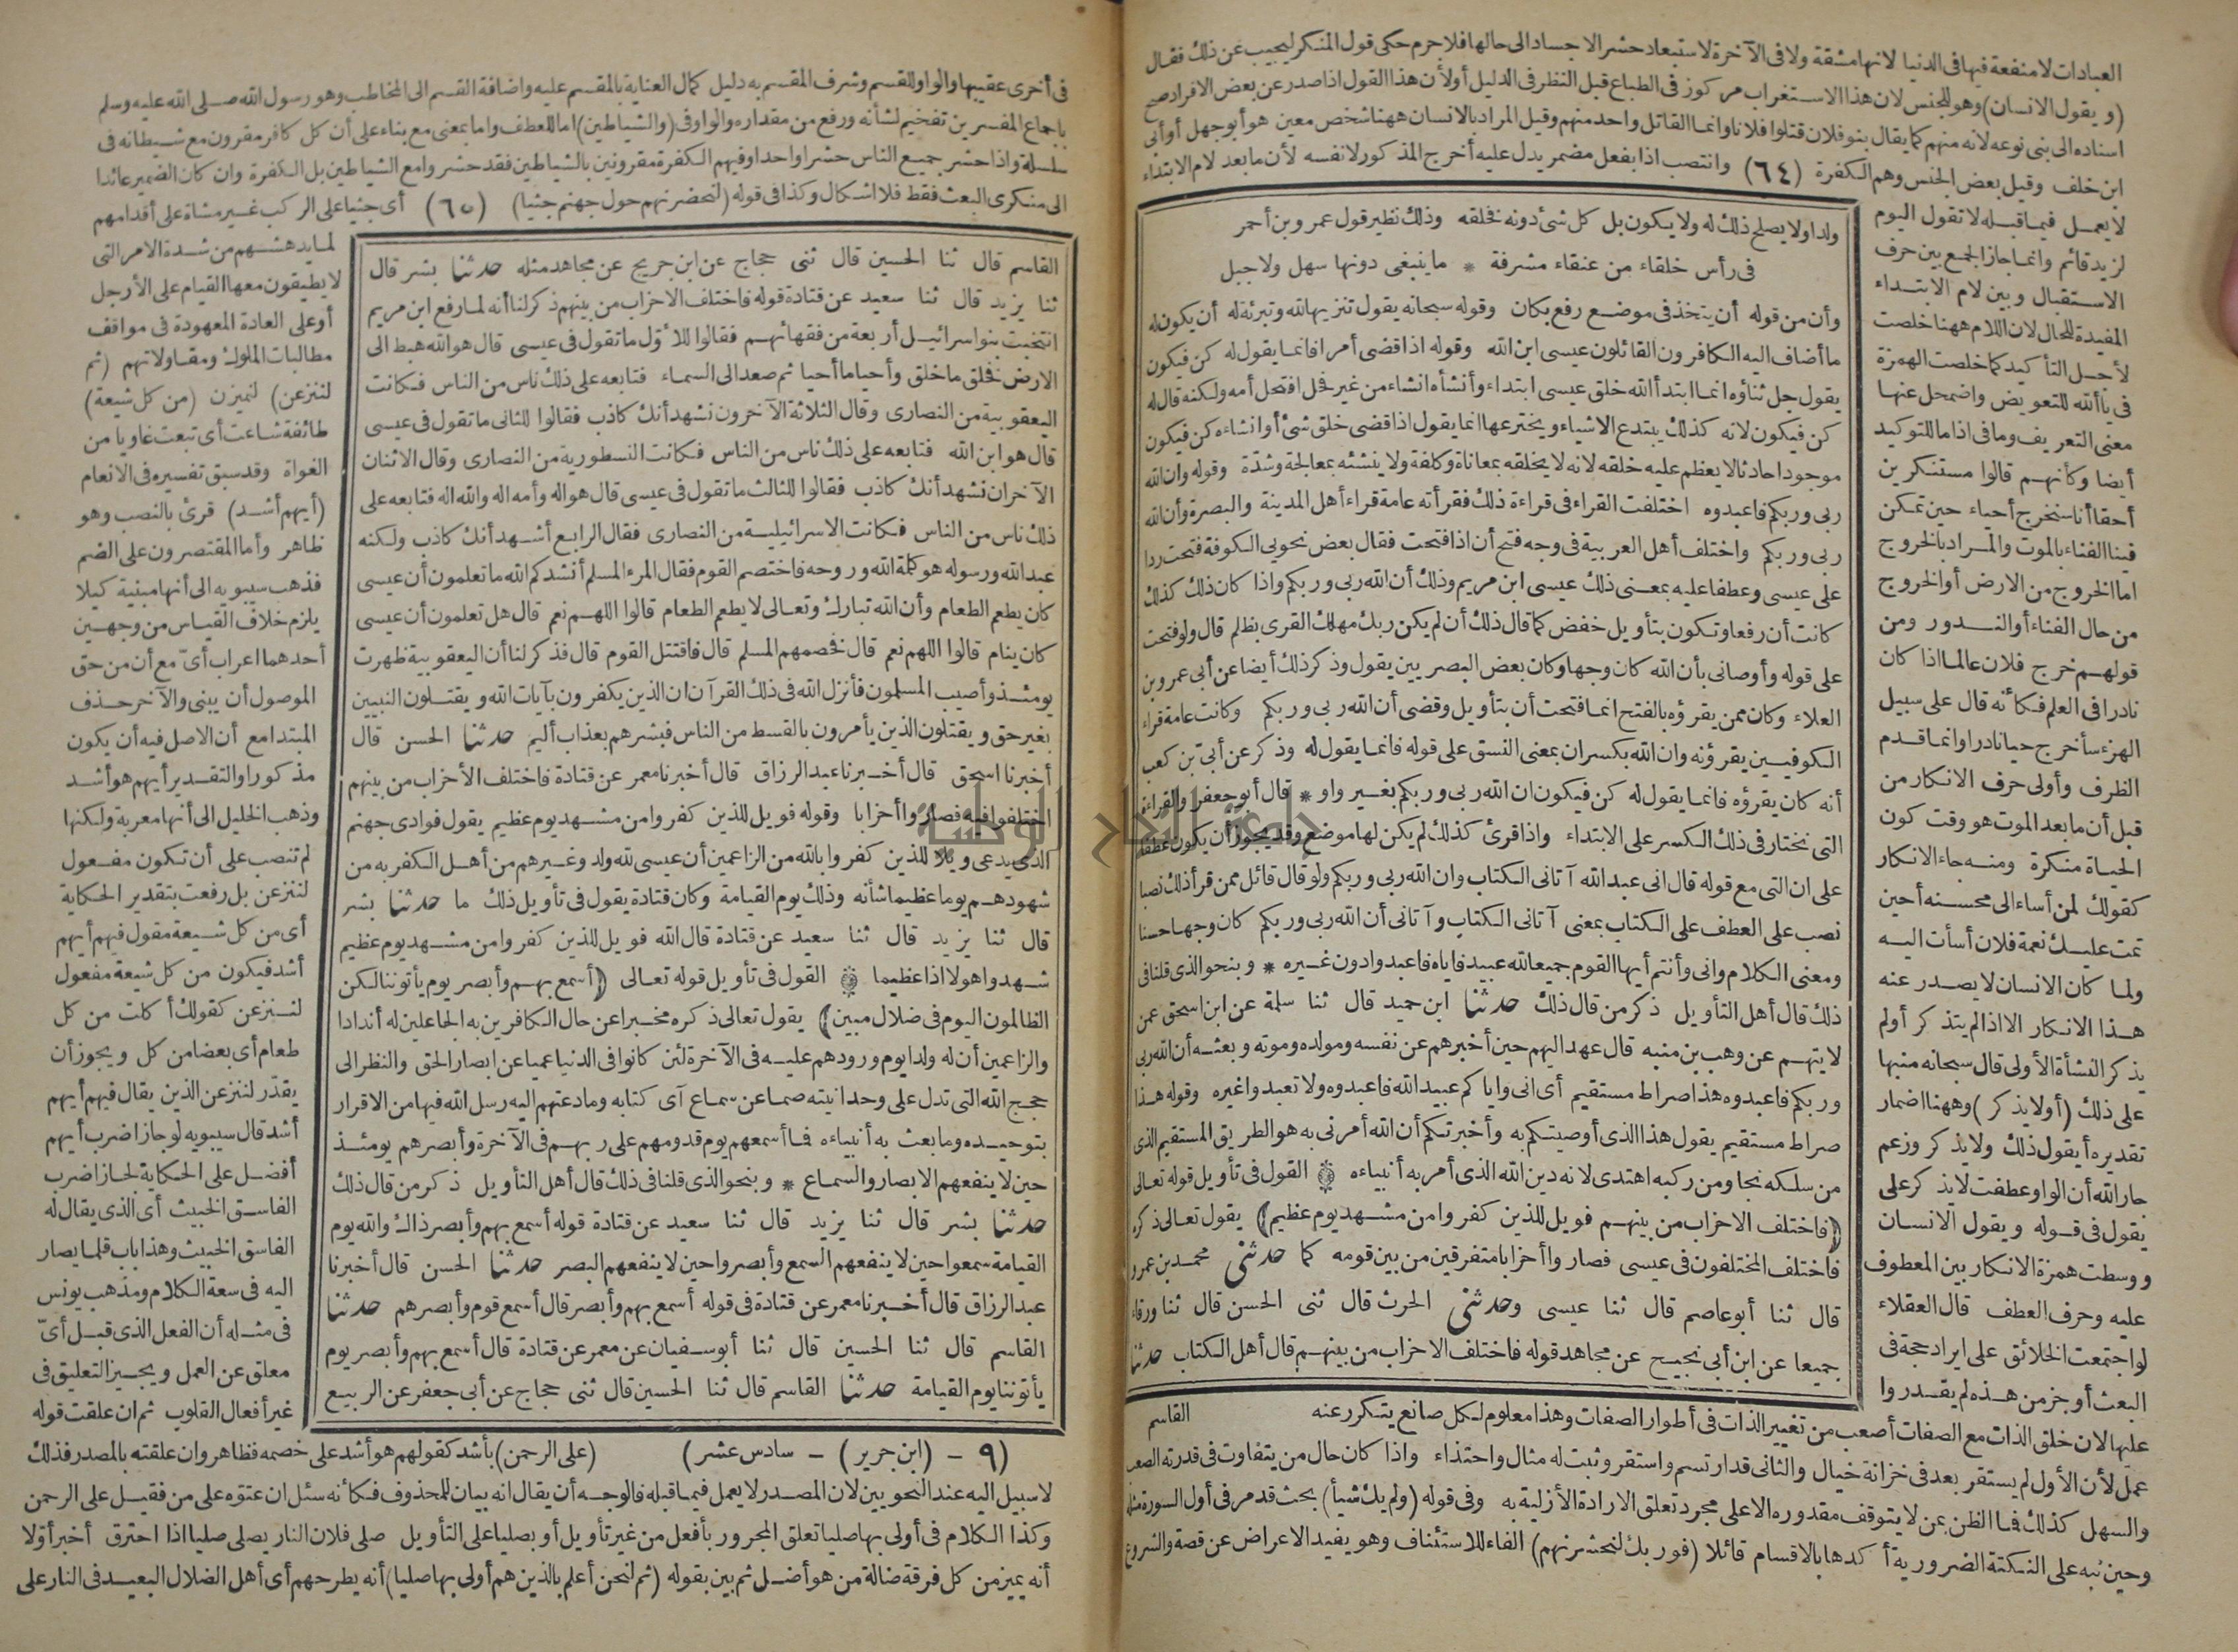 العبادات لا منفعة فيها فى الدنيا لانها مشقة ولا فى الآخرة لاستبعاد حشر الاجساد الى حالها فلا جرم حكى قول المنكر ليجيب عن ذلك فقال
(ويقول الانسان) وهو للجنس لان هذا الاستغراب مركوز فى الطباع قبل النظر فى الدليل أولأن هذا القول اذا صدر عن بعض الافراد صح
اسناده الى بنى نوعه لانه منهم كما يقال بنو فلان قتلوا فلانا وانما القاتل واحد منهم وقيل المراد بالانسان ههنا شخص معين هو أبو جهل أو أبى
ابن خلف وقيل بعض الجنس وهم الكفرة (٦٤) وانتصب اذا بفعل مضمر يدل عليه أخرج المذكور لا نفسه لأن ما بعد لام الابتداء
لا يعمل فيما قبله لا تقول اليوم
لزيد قائم وانما جاز الجمع بين حرف
الاستقبال وبين لام الابتداء
المفيدة للحال لان اللام ههنا خلصت
لأجل التأكيد كما خلصت الهمزة
فى ياألله للتعويض واضمحل عنها
معنى التعريف وما فى اذا ما للتوكيد
أيضا وكأنهم قالوا مستنكرين
أحقا أنا سنخرج أحياء حين تمكن
فينا الفناء بالموت والمراد بالخروج
اما الخروج من الارض أو الخروج
من حال الفناء أو الندور ومن
قولهم خرج فلان عالما اذا كان
نادرا فى العلم فكأنه قال على سبيل
الهزء سأخرج حيا نادرا وانما قدم
الظرف وأولى حرف الانكار من
قبل أن ما بعد الموت هو وقت كون
الحياة منكرة ومنه جاء الانكار
كقولك لمن أساء الى محسنه أحين
تمت عليك نعمة فلان أسأت اليه
ولما كان الانسان لا يصدر عنه
هذا الانكار الا اذا لم يتذكر أولم
يذكر النشأة الأولى قال سبحانه منبها
على ذلك (أولا يذكر) وههنا اضمار
تقديره أيقول ذلك ولا يذكر وزعم
جار الله أن الواو عطفت لا يذكر على
يقول فى قوله ويقول الانسان
ووسطت همزة الانكار بين المعطوف
عليه وحرف العطف قال العقلاء
لو اجتمعت الخلائق على ايراد حجة فى
البعث أوجز من هذه لم يقدروا
ولدا ولا يصلح ذلك له ولا يكون بل كل شئ دونه فخلقه وذلك نظير قول عمرو بن أحمر
فى رأس خلقاء من عنقاء مشرفة * ما ينبغى دونها سهل ولا جبل
وأن من قوله أن يتخذ فى موضع رفع بكان وقوله سبحانه يقول تنزيها لله وتبرئة له أن يكون له
ما أضاف اليه الكافرون القائلون عيسى ابن الله وقوله اذا قضى أمرا فانما يقول له كن فيكون
يقول جل ثناؤه انما ابتدأ الله خلق عيسى ابتداء وأنشأه انشاء من غير فحل افتحل أمه ولكنه قال له
كن فيكون لانه كذلك يبتدع الاشياء ويخترعها انما يقول اذا قضى خلق شئ أو انشاءه كن فيكون
موجودا حادثا لا يعظم عليه خلقه لانه لا يخلقه بمعاناة وكلفة ولا ينشئه بمعالجة وشدّة وقوله وان الله
ربى وربكم فاعبدوه اختلفت القراء فى قراءة ذلك فقرأته عامة قراء أهل المدينة والبصرة وأن الله
ربى وربكم واختلف أهل العربية فى وجه فتح أن اذا فتحت فقال بعض نحويى الكوفة فتحت ردا
على عيسى وعطفا عليه بمعنى ذلك عيسى ابن مريم وذلك أن الله ربى وربكم واذا كان ذلك كذلك
كانت أن رفعا وتكون بتأويل خفض كما قال ذلك أن لم يكن ربك مهلك القرى بظلم قال ولو فتحت
على قوله وأوصانى بأن الله كان وجها وكان بعض البصريين يقول وذكر ذلك أيضا عن أبى عمرو بن
العلاء وكان ممن يقرؤه بالفتح انما فتحت أن بتأويل وقضى أن الله ربى وربكم وكانت عامة قراء
الكوفيين يقرؤنه وان الله بكسر ان بمعنى النسق على قوله فانما يقول له وذكر عن أبىّ بن كعب
أنه كان يقرؤه فانما يقول له كن فيكون ان الله ربى وربكم بغير واو * قال أبو جعفر والقراءة
التى نختار فى ذلك الكسر على الابتداء واذا قرئ كذلك لم يكن لها موضع وقد يجوز أن يكون عطفا
على ان التى مع قوله قال انى عبد الله آتانى الكتاب وان الله ربى وربكم ولو قال قائل ممن قرأ ذلك نصبا
نصب على العطف على الكتاب بمعنى آتانى الكتاب وآتانى أن الله ربى وربكم كان وجها حسنا
ومعنى الكلام وانى وأنتم أيها القوم جميعا لله عبيد فاياه فاعبدوا دون غيره * وبنحو الذى قلنا فى
ذلك قال أهل التأويل ذكر من قال ذلك حدثنا ابن حميد قال ثنا سلمة عن ابن اسحق عمن
لا يتهم عن وهب بن منبه قال عهد اليهم حين أخبرهم عن نفسه ومولده وموته وبعثه أن الله ربى
وربكم فاعبدوه هذا صراط مستقيم أى انى واياكم عبيد الله فاعبدوه ولا تعبدوا غيره وقوله هذا
صراط مستقيم يقول هذا الذى أوصيتكم به وأخبرتكم أن الله أمرنى به هو الطريق المستقيم الذى
من سلكه نجا ومن ركبه اهتدى لانه دين الله الذى أمر به أنبياءه القول فى تأويل قوله تعالى
(فاختلف الاحزاب من بينهم فويل للذين كفروا من مشهد يوم عظيم) يقول تعالى ذكره
فاختلف المختلفون فى عيسى فصاروا أحزابا متفرقين من بين قومه كما حدثنى محمد بن عمرو
قال ثنا أبو عاصم قال ثنا عيسى وحدثنى الحرث قال ثنى الحسن قال ثنا ورقاء
جميعا عن ابن أبى نجيح عن مجاهد قوله فاختلف الاحزاب من بينهم قال أهل الكتاب حدثنا
القاسم
عليها لان خلق الذات مع الصفات أصعب من تغيير الذات فى أطوار الصفات وهذا معلوم لكل صانع يتكرر عنه
عمل لأن الأول لم يستقر بعد فى خزانة خيال والثانى قد ارتسم واستقر وثبت له مثال واحتذاء واذا كان حال من يتفاوت فى قدرته الصعب
والسهل كذلك فما الظن بمن لا يتوقف مقدوره الا على مجرد تعلق الارادة الأزلية به وفى قوله (ولم يك شيأ) بحث قد مر فى أول السورة مثله
وحين نبه على النكتة الضرورية أكدها بالاقسام قائلا (فوربك لنحشرنهم) الفاء للاستئناف وهو يفيد الاعراض عن قصة والشروع
فى أخرى عقيبها والواو للقسم وشرف المقسم به دليل كمال العناية بالمقسم عليه واضافة القسم الى المخاطب وهو رسول الله صلى الله عليه وسلم
باجماع المفسرين تفخيم لشأنه ورفع من مقداره والواو فى (والشياطين) اما للعطف واما بمعنى مع بناء على أن كل كافر مقرون مع شيطانه فى
سلسلة واذا حشر جميع الناس حشرا واحدا وفيهم الكفرة مقرونين بالشياطين فقد حشروا مع الشياطين بل الكفرة وان كان الضمير عائدا
الى منكرى البعث فقط فلا اشكال وكذا فى قوله (لنحضرنهم حول جهنم جثيا) (٦٥) أى جثيا على الركب غير مشاة على أقدامهم
لما يدهشهم من شدة الامر التى
لا يطيقون معها القيام على الأرجل
أو على العادة المعهودة فى مواقف
مطالبات الملوك ومقاولاتهم (ثم
لننزعن) لنميزن (من كل شيعة)
طائفة شاعت أى تبعت غاويا من
الغواة وقد سبق تفسيره فى الانعام
(أيهم أشد) قرئ بالنصب وهو
ظاهر وأما المقتصرون على الضم
فذهب سيبويه الى أنها مبنية كيلا
يلزم خلاف القياس من وجهين
أحدهما اعراب أىّ مع أن من حق
الموصول أن يبنى والآخر حذف
المبتدا مع أن الاصل فيه أن يكون
مذكورا والتقدير أيهم هو أشد
وذهب الخليل الى أنها معربة ولكنها
لم تنصب على أن تكون مفعول
لننزعن بل رفعت بتقدير الحكاية
أى من كل شيعة مقول فيهم أيهم
أشد فيكون من كل شيعة مفعول
لننزعن كقولك أكلت من كل
طعام أى بعضا من كل ويجوز أن
يقدّر لننزعن الذين يقال فيهم أيهم
أشد قال سيبويه لو جاز اضرب أيهم
أفضل على الحكاية لجاز اضرب
الفاسق الخبيث أى الذى يقال له
الفاسق الخبيث وهذا باب قلما يصار
اليه فى سعة الكلام ومذهب يونس
فى مثله أن الفعل الذى قبل أىّ
معلق عن العمل ويجيز التعليق فى
غير أفعال القلوب ثم ان علقت قوله
القاسم قال ثنا الحسين قال ثنى حجاج عن ابن جريج عن مجاهد مثله حدثنا بشر قال
ثنا يزيد قال ثنا سعيد عن قتادة قوله فاختلف الاحزاب من بينهم ذكر لنا أنه لما رفع ابن مريم
انتخبت بنو اسرائيل أربعة من فقهائهم فقالوا للأول ما تقول فى عيسى قال هو الله هبط الى
الارض فخلق ما خلق وأحيا ما أحيا ثم صعد الى السماء فتابعه على ذلك ناس من الناس فكانت
اليعقوبية من النصارى وقال الثلاثة الآخرون نشهد أنك كاذب فقالوا للثانى ما تقول فى عيسى
قال هو ابن الله فتابعه على ذلك ناس من الناس فكانت النسطورية من النصارى وقال الاثنان
الآخران نشهد أنك كاذب فقالوا للثالث ما تقول فى عيسى قال هو اله وأمه اله والله اله فتابعه على
ذلك ناس من الناس فكانت الاسرائيلية من النصارى فقال الرابع أشهد أنك كاذب ولكنه
عبد الله ورسوله هو كلمة الله وروحه فاختصم القوم فقال المرء المسلم أنشدكم الله ما تعلمون أن عيسى
كان يطعم الطعام وأن الله تبارك وتعالى لا يطعم الطعام قالوا اللهم نعم قال هل تعلمون أن عيسى
كان ينام قالوا اللهم نعم قال فخصمهم المسلم قال فاقتتل القوم قال فذكر لنا أن اليعقوبية ظهرت
يومئذ وأصيب المسلمون فأنزل الله فى ذلك القرآن ان الذين يكفرون بآيات الله ويقتلون النبيين
بغير حق ويقتلون الذين يأمرون بالقسط من الناس فبشرهم بعذاب أليم حدثنا الحسن قال
أخبرنا اسحق قال أخبرنا عبد الرزاق قال أخبرنا معمر عن قتادة فاختلف الأحزاب من بينهم
اختلفوا فيه فصاروا أحزابا وقوله فويل للذين كفروا من مشهد يوم عظيم يقول فوادى جهنم
الذى يدعى ويلا للذين كفروا بالله من الزاعمين أن عيسى لله ولد وغيرهم من أهل الكفر به من
شهودهم يوما عظيما شأنه وذلك يوم القيامة وكان قتادة يقول فى تأويل ذلك ما حدثنا بشر
قال ثنا يزيد قال ثنا سعيد عن قتادة قال الله فويل للذين كفروا من مشهد يوم عظيم
شهدوا هولا اذا عظيما القول فى تأويل قوله تعالى (أسمع بهم وأبصر يوم يأتوننا لكن
الظالمون اليوم فى ضلال مبين) يقول تعالى ذكره مخبرا عن حال الكافرين به الجاعلين له أندادا
والزاعمين أن له ولدا يوم ورودهم عليه فى الآخرة لئن كانوا فى الدنيا عميا عن ابصار الحق والنظر الى
حجج الله التى تدل على وحدانيته صما عن سماع آى كتابه وما دعتهم اليه رسل الله فيها من الاقرار
بتوحيده وما بعث به أنبياءه فما أسمعهم يوم قدومهم على ربهم فى الآخرة وأبصرهم يومئذ
حين لا ينفعهم الابصار والسماع * وبنحو الذى قلنا فى ذلك قال أهل التأويل ذكر من قال ذلك
حدثنا بشر قال ثنا يزيد قال ثنا سعيد عن قتادة قوله أسمع بهم وأبصر ذاك والله يوم
القيامة سمعوا حين لا ينفعهم السمع وأبصروا حين لا ينفعهم البصر حدثنا الحسن قال أخبرنا
عبد الرزاق قال أخبرنا معمر عن قتادة فى قوله أسمع بهم وأبصر قال أسمع قوم وأبصرهم حدثنا
القاسم قال ثنا الحسين قال ثنا أبو سفيان عن معمر عن قتادة قال أسمع بهم وأبصر يوم
يأتوننا يوم القيامة حدثنا القاسم قال ثنا الحسين قال ثنى حجاج عن أبى جعفر عن الربيع
(٩ - (ابن جرير) - سادس عشر) (على الرحمن) بأشد كقولهم هو أشد على خصمه فظاهر وان علقته بالمصدر فذلك
لا سبيل اليه عند النحويين لان المصدر لا يعمل فيما قبله فالوجه أن يقال انه بيان للمحذوف فكأنه سئل ان عتوّه على من فقيل على الرحمن
وكذا الكلام فى أولى بها صليا تعلق المجرور بأفعل من غير تأويل أو بصليا على التأويل صلى فلان النار يصلى صليا اذا احترق أخبر أوّلا
أنه يميز من كل فرقة ضالة من هو أضل ثم بين بقوله (ثم لنحن أعلم بالذين هم أولى بها صليا) أنه يطرحهم أى أهل الضلال البعيد فى النار على
جامعة النجاح الوطنية